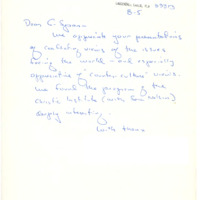 8.5
Dear
We appreciate your presentations
of conflicting views of the issues
facing the world - and especially
appreciative of "counter culture" views.
We found the program of the
Institute (with Tom
deeply interesting
With thanks